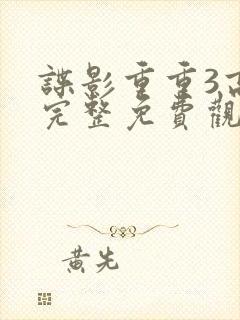 諜影重重3高
完整免費觀
黃先